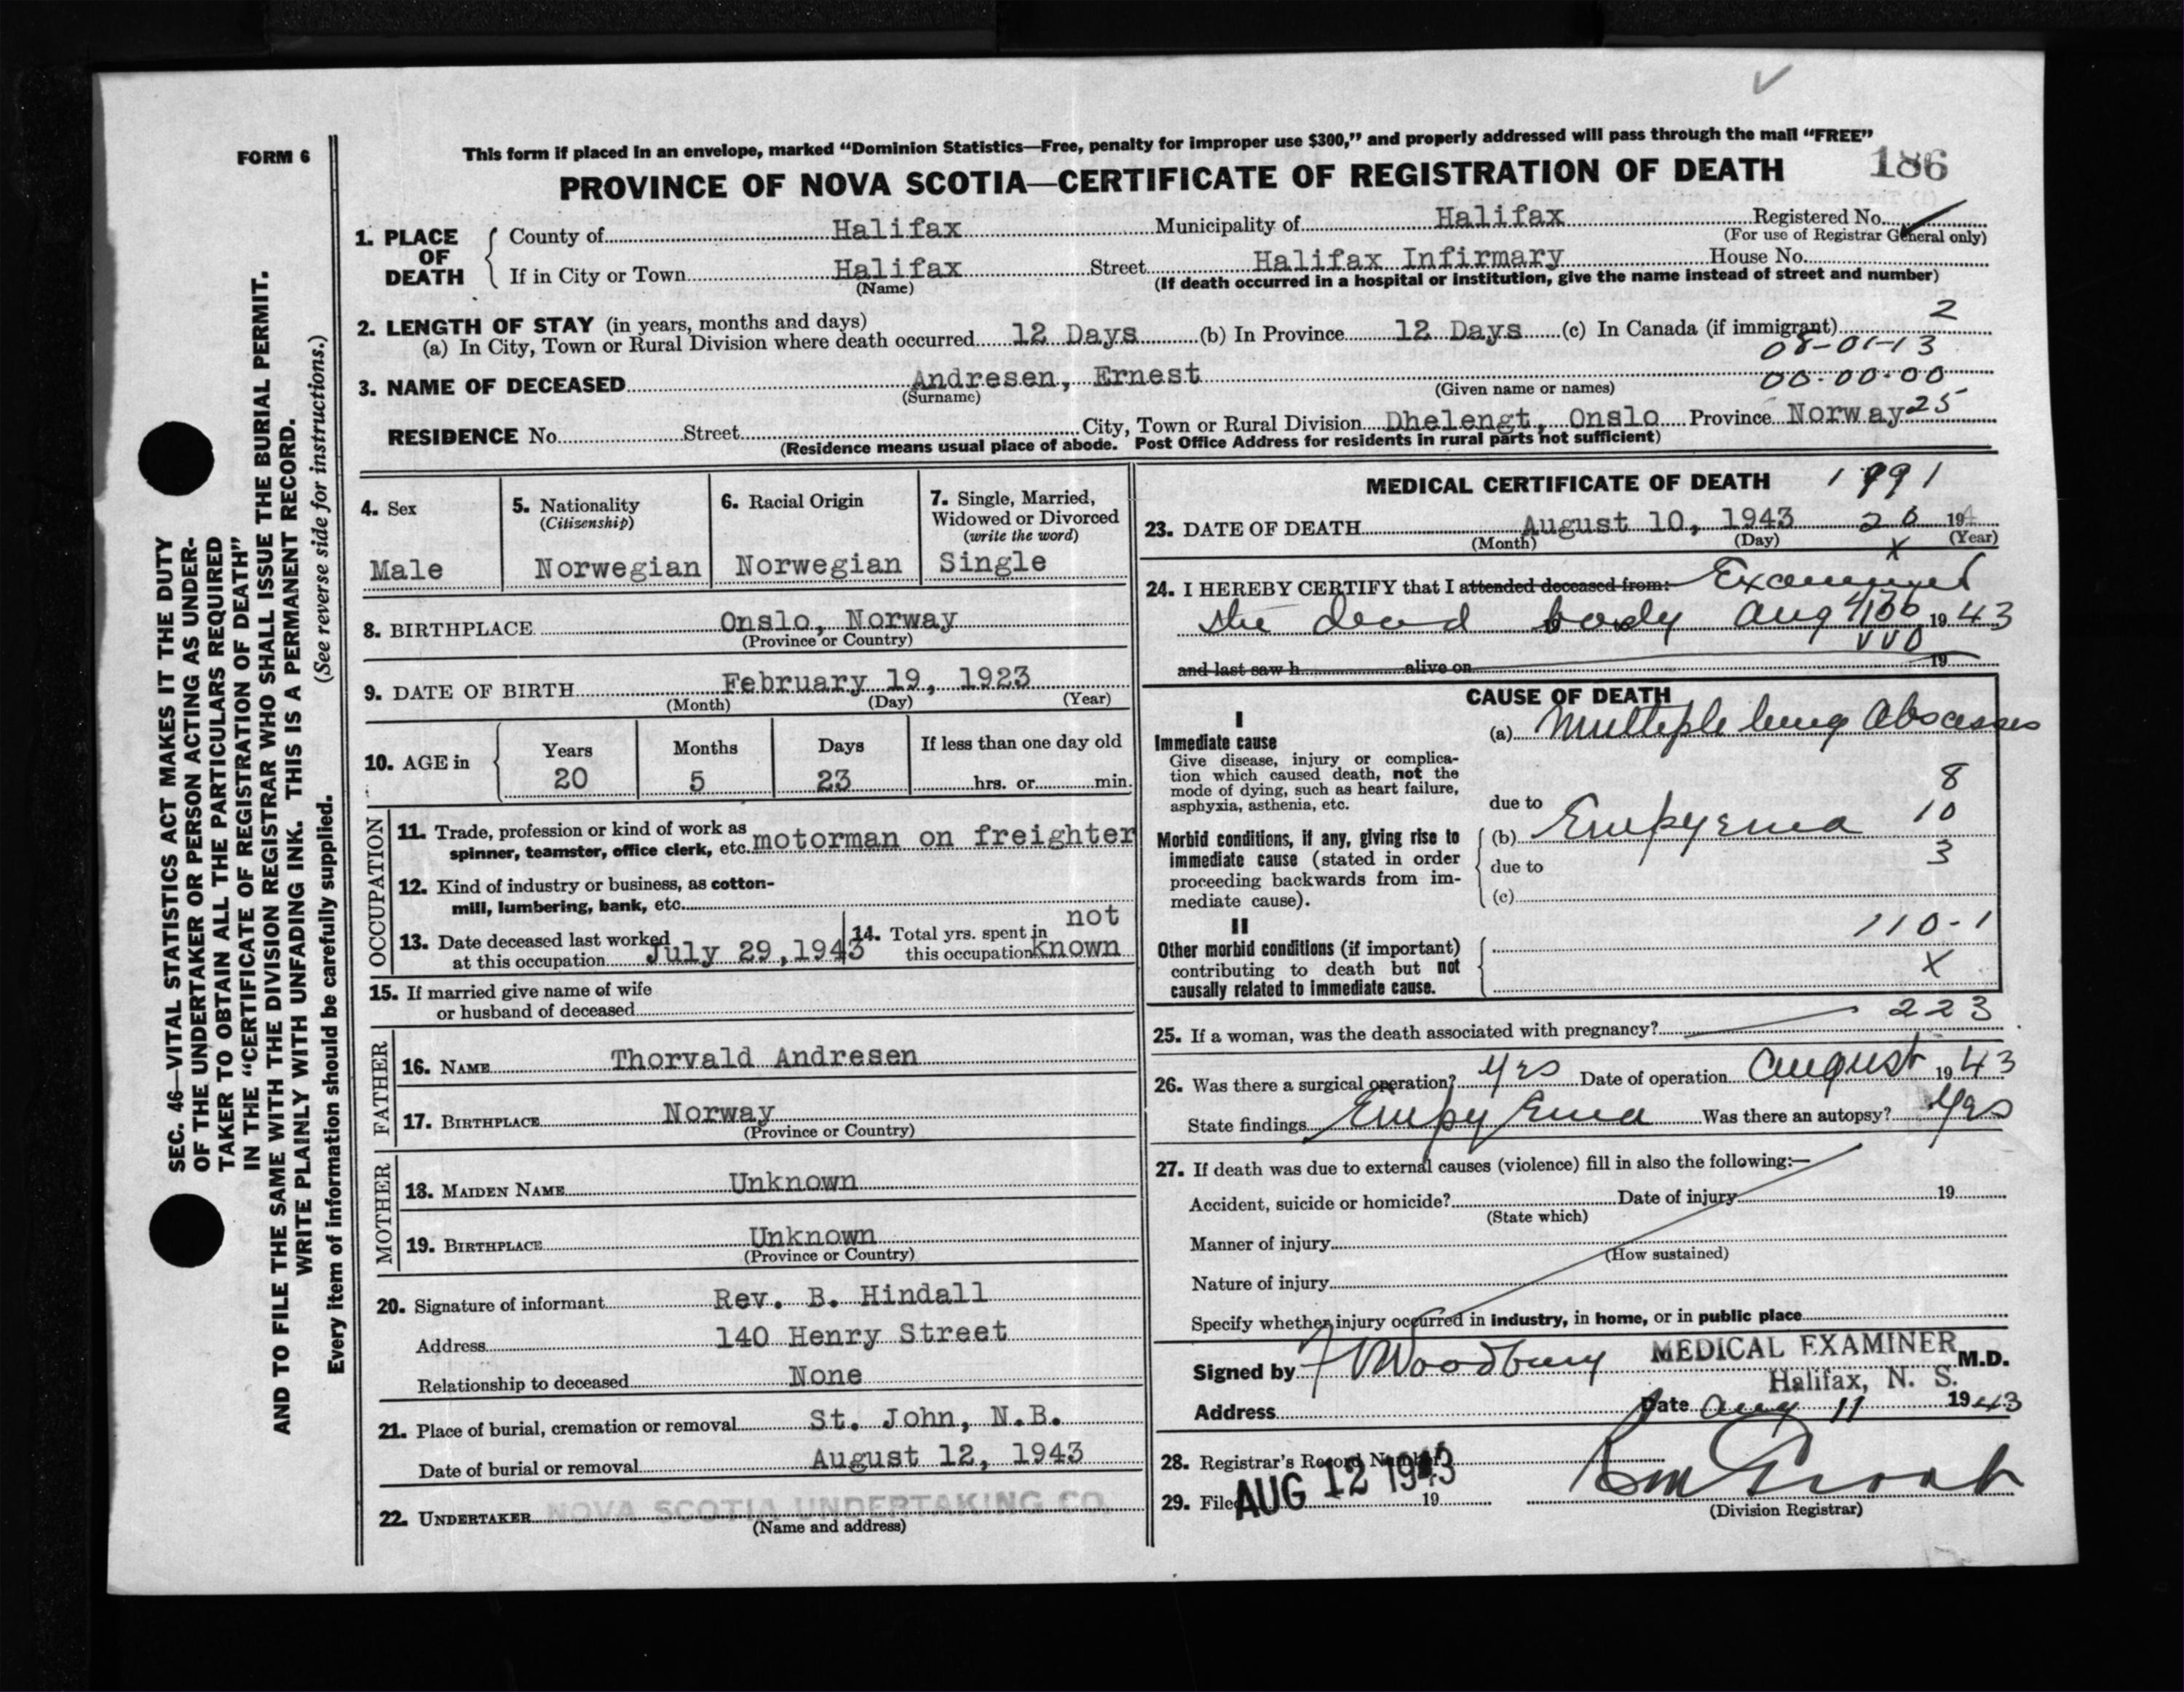 FORM 6
This form if placed in an envelope, marked “Dominion Statistics—Free, penalty for improper use $300,” and properly addressed will pass through the mail “FREE”
PROVINCE OF NOVA SCOTIA—CERTIFICATE OF REGISTRATION OF DEATH 186
1. PLACE OF DEATH
County of Halifax Municipality of Halifax Registered No.
(For use of Registrar General only)
If in City or Town Halifax Street Halifax Infirmary House No.
(Name) (If death occurred in a hospital or institution, give the name instead of street and number)
2. LENGTH OF STAY (in years, months and days) 2
(a) In City, Town or Rural Division where death occurred 12 Days (b) In Province 12 Days (c) In Canada (if immigrant)
08-01-13
3. NAME OF DECEASED Andresen, Ernest 00-00-00
(Surname) (Given name or names)
RESIDENCE No. Street City, Town or Rural Division Dhelengt, Onslo Province Norway 25
(Residence means usual place of abode. Post Office Address for residents in rural parts not sufficient)
4. Sex
Male
5. Nationality
(Citizenship)
Norwegian
6. Racial Origin
Norwegian
7. Single, Married,
Widowed or Divorced
(write the word)
Single
8. BIRTHPLACE Onslo, Norway
(Province or Country)
9. DATE OF BIRTH February 19, 1923
(Month) (Day) (Year)
10. AGE in Years Months Days If less than one day old
20 5 23 hrs. or min.
OCCUPATION
11. Trade, profession or kind of work as
spinner, teamster, office clerk, etc. motorman on freighter
12. Kind of industry or business, as cotton-
mill, lumbering, bank, etc.
13. Date deceased last worked
at this occupation July 29, 1943
14. Total yrs. spent in
this occupation not known
15. If married give name of wife
or husband of deceased
FATHER
16. NAME Thorvald Andresen
17. BIRTHPLACE Norway
(Province or Country)
MOTHER
18. MAIDEN NAME Unknown
19. BIRTHPLACE Unknown
(Province or Country)
20. Signature of informant Rev. B. Hindall
Address 140 Henry Street
Relationship to deceased None
21. Place of burial, cremation or removal St. John, N.B.
Date of burial or removal August 12, 1943
22. UNDERTAKER NOVA SCOTIA UNDERTAKING CO.
(Name and address)
MEDICAL CERTIFICATE OF DEATH 1991
23. DATE OF DEATH August 10, 1943 26 194
(Month) (Day) (Year)
x
24. I HEREBY CERTIFY that I attended deceased from: Examined
the dead body Aug 19 43
and last saw h alive on 19
CAUSE OF DEATH
I
Immediate cause
Give disease, injury or complica-
tion which caused death, not the
mode of dying, such as heart failure,
asphyxia, asthenia, etc.
(a) Multiple lung Abscesses
8
due to
10
Morbid conditions, if any, giving rise to
immediate cause (stated in order
proceeding backwards from im-
mediate cause).
(b) Empyema
due to 3
(c)
II
Other morbid conditions (if important)
contributing to death but not
causally related to immediate cause.
110-1
X
223
25. If a woman, was the death associated with pregnancy?
26. Was there a surgical operation? yes Date of operation August 19 43
State findings Empyema Was there an autopsy? Yes
27. If death was due to external causes (violence) fill in also the following:—
Accident, suicide or homicide? Date of injury 19
(State which)
Manner of injury
(How sustained)
Nature of injury
Specify whether injury occurred in industry, in home, or in public place
Signed by Woodbury MEDICAL EXAMINER M.D.
Halifax, N. S.
Address Date Aug 11 1943
28. Registrar's Record Number
29. Filed AUG 12 1943 19
(Division Registrar)
SEC. 46—VITAL STATISTICS ACT MAKES IT THE DUTY
OF THE UNDERTAKER OR PERSON ACTING AS UNDER-
TAKER TO OBTAIN ALL THE PARTICULARS REQUIRED
IN THE “CERTIFICATE OF REGISTRATION OF DEATH”
AND TO FILE THE SAME WITH THE DIVISION REGISTRAR WHO SHALL ISSUE THE BURIAL PERMIT.
WRITE PLAINLY WITH UNFADING INK. THIS IS A PERMANENT RECORD.
(See reverse side for instructions.)
Every item of information should be carefully supplied.